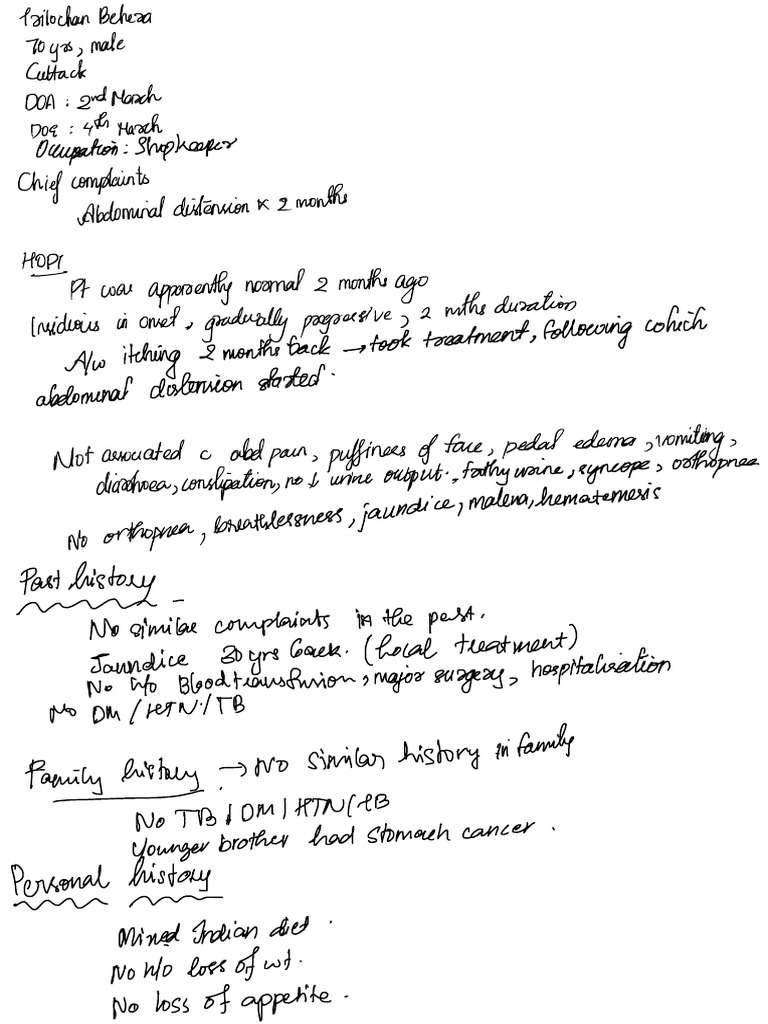 Trilochan Behera
70 yrs, male
Cuttack
DOA : 2nd March
DOE : 4th March
Occupation : Shopkeeper
Chief complaints
Abdominal distension x 2 months
HOPI
Pt was apparently normal 2 months ago
Insidious in onset, gradually progressive, 2 mths duration
A/w itching 2 months back → took treatment, following which
abdominal distension started.
Not associated c abd pain, puffiness of face, pedal edema, vomiting,
diarrhoea, constipation, no ↓ urine output., frothy urine, syncope, orthopnea
No orthopnea, breathlessness, jaundice, malena, hematemesis
Past history
No similar complaints in the past.
Jaundice 30 yrs back. (Local treatment)
No h/o Blood transfusion, major surgery, hospitalisation
No DM / HTN / TB
Family history → No similar history in family
No TB / DM / HTN / TB
Younger brother had stomach cancer.
Personal history
Mixed Indian diet.
No h/o loss of wt.
No loss of appetite.